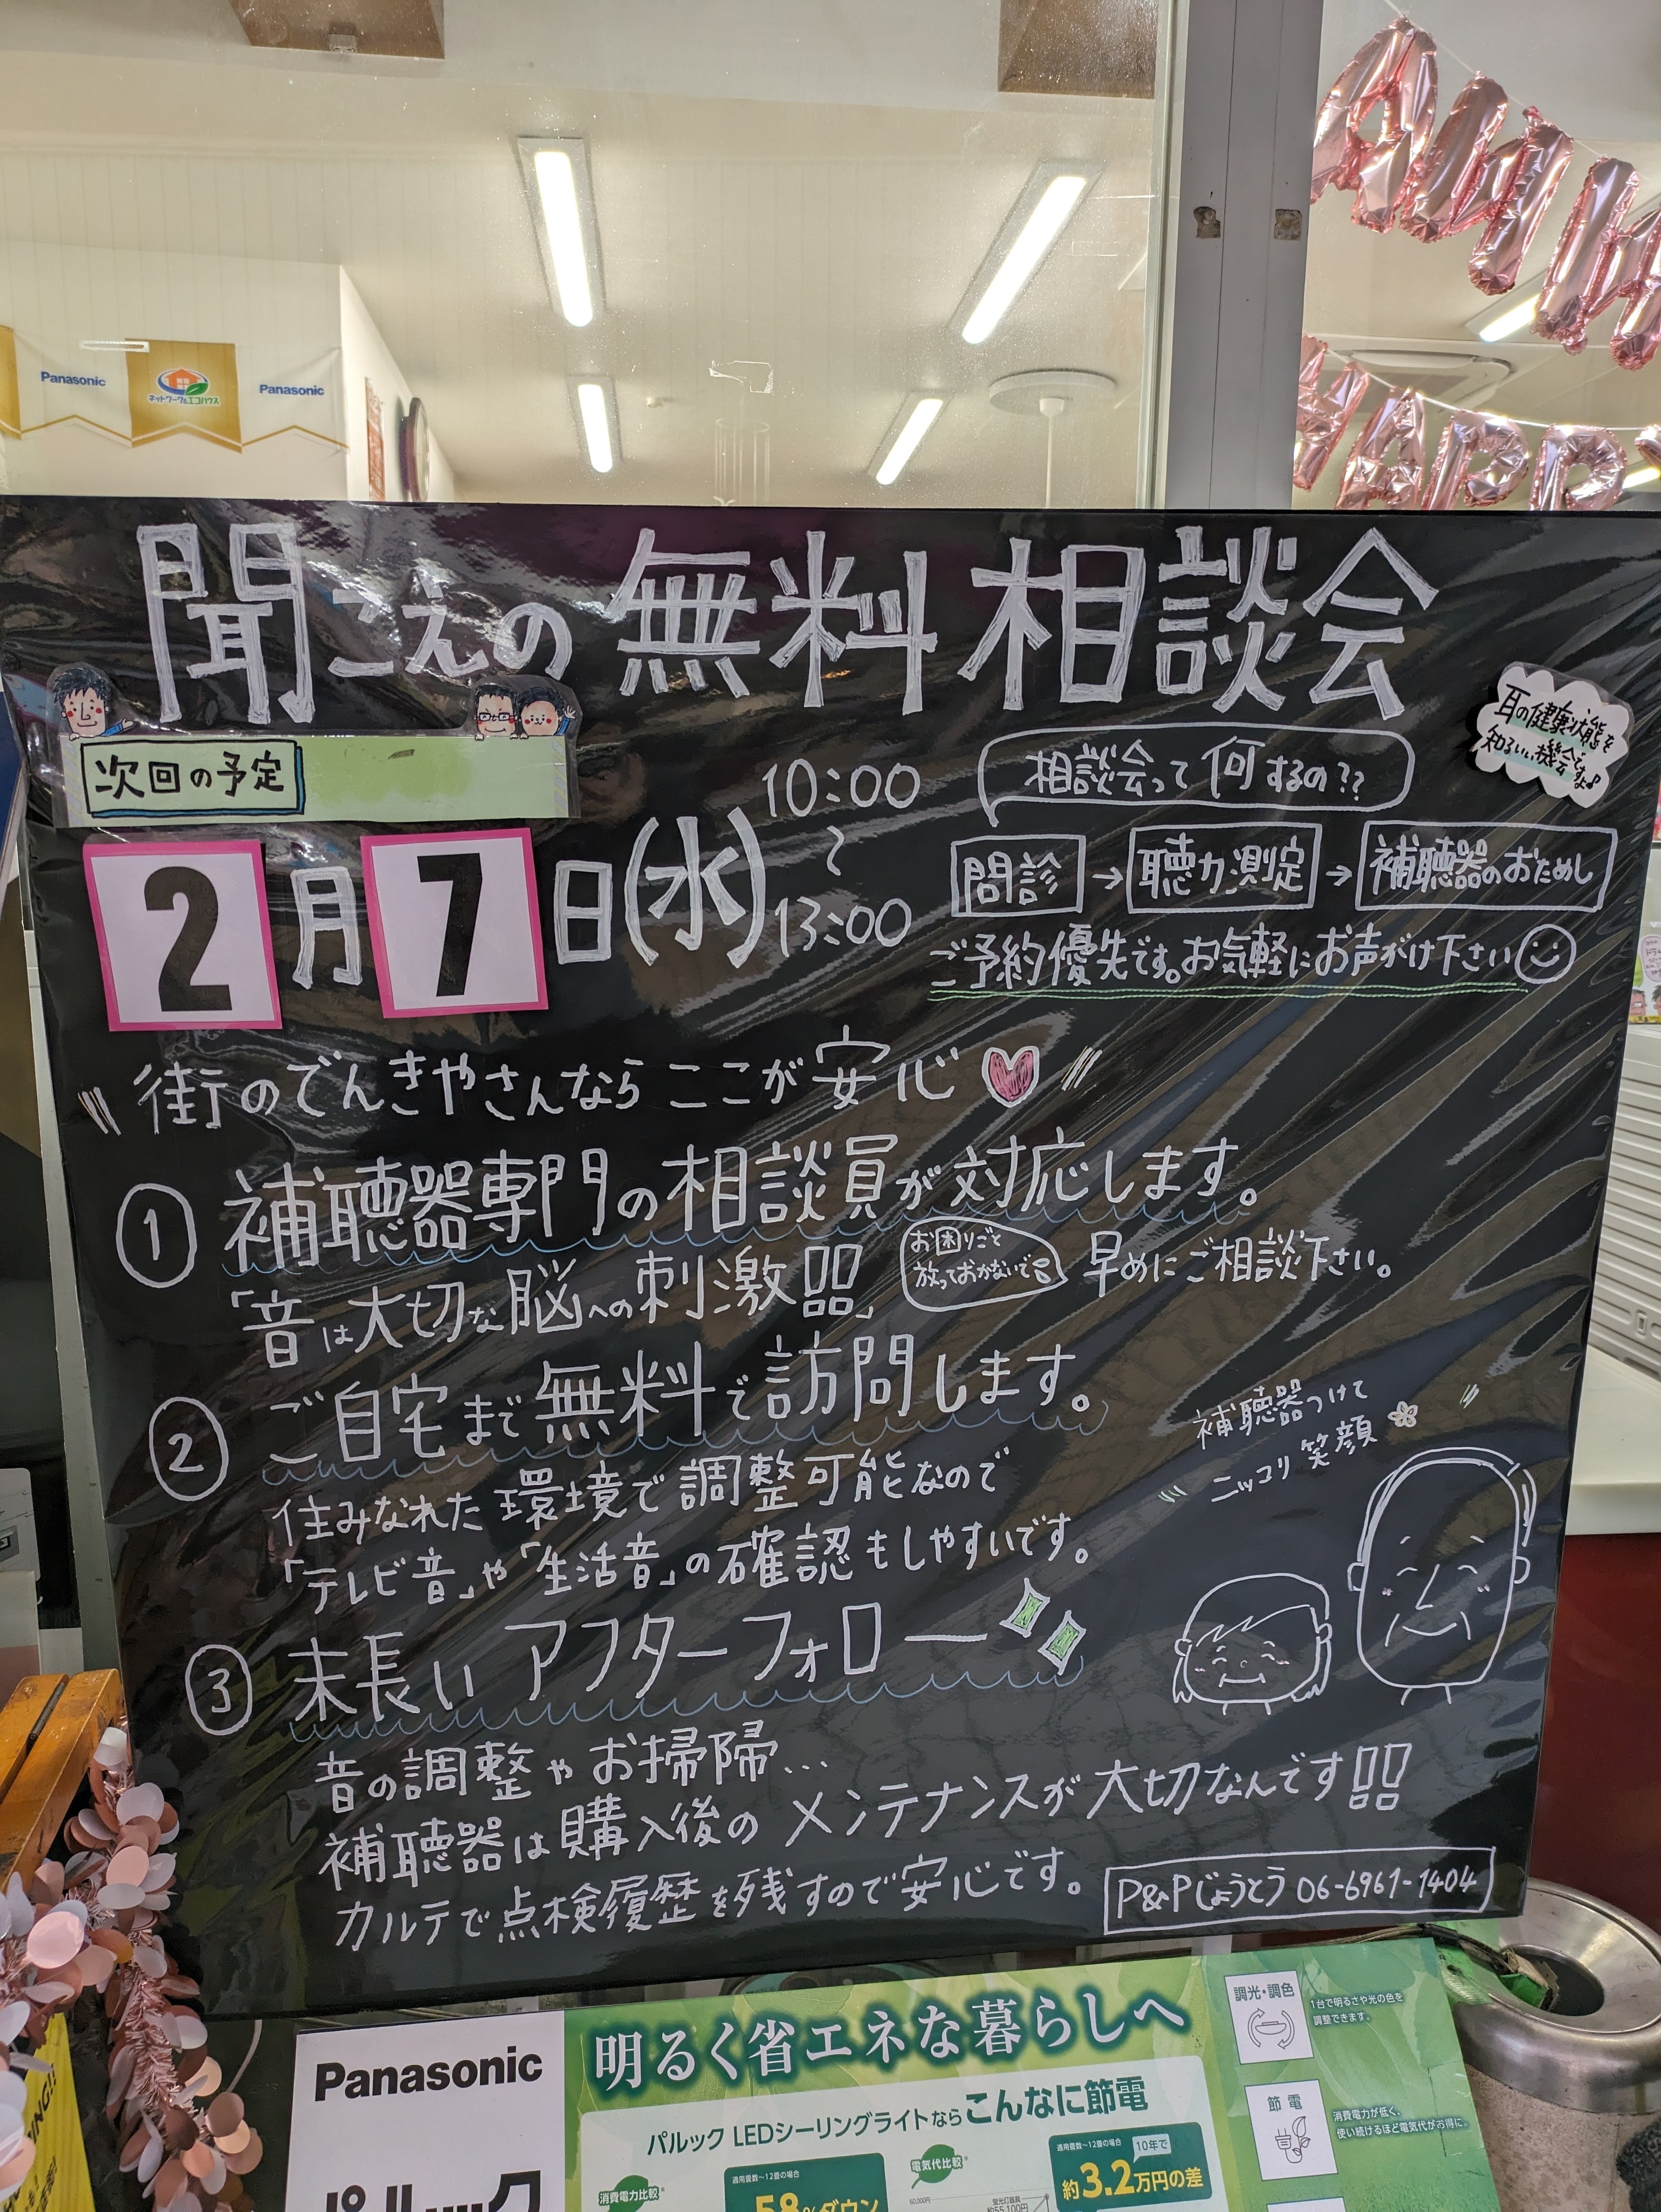 Panasonic
ネットワーク&エコハウス
Panasonic
HAPP
聞こえの無料相談会
耳の健康状態を
知るいい機会ですよ♪
次回の予定
2月7日(水)
10:00
～
13:00
相談会って何するの??
問診→聴力測定→補聴器のおためし
ご予約優先です。お気軽にお声がけ下さい
街のでんきやさんならここが安心
① 補聴器専門の相談員が対応します。
「音は大切な脳への刺激!!」
お困りごと
放っておかないで!
早めにご相談下さい。
② ご自宅まで無料で訪問します。
住みなれた環境で調整可能なので
「テレビ音」や「生活音」の確認もしやすいです。
補聴器つけて
ニッコリ笑顔
③ 末長いアフターフォロー
音の調整やお掃除...
補聴器は購入後のメンテナンスが大切なんです!!
カルテで点検履歴を残すので安心です。
P&Pじょうとう 06-6961-1404
Panasonic
パルック
明るく省エネな暮らしへ
パルック LEDシーリングライトならこんなに節電
消費電力比較
適用畳数～12畳の場合
58%ダウン
電気代比較
60,000円
蛍光灯器具
約55,100円
適用畳数～12畳の場合
10年で
約3.2万円の差
調光・調色
1台で明るさや光の色を
調整できます。
節電
消費電力が低く、
使い続けるほど電気代がお得に。